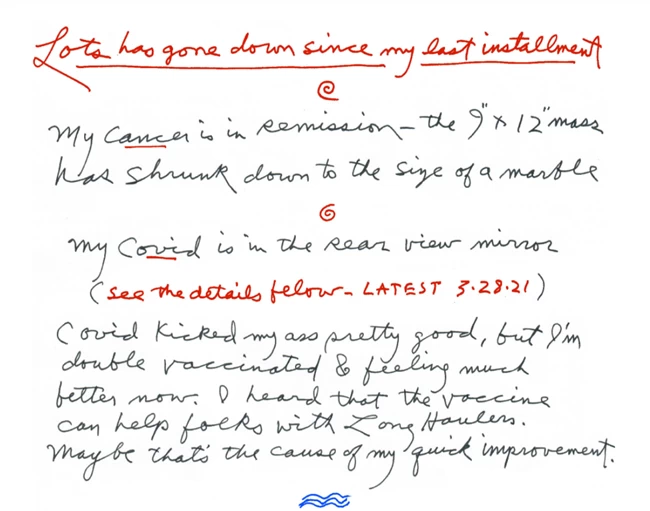 Lots has gone down since my last installment
My Cancer is in remission – the 9" x 12" mass
has shrunk down to the size of a marble
my Covid is in the rear view mirror
(see the details below – LATEST 3.28.21)
Covid kicked my ass pretty good, but I'm
double vaccinated & feeling much
better now. I heard that the vaccine
can help folks with Long Haulers.
Maybe that's the cause of my quick improvement.